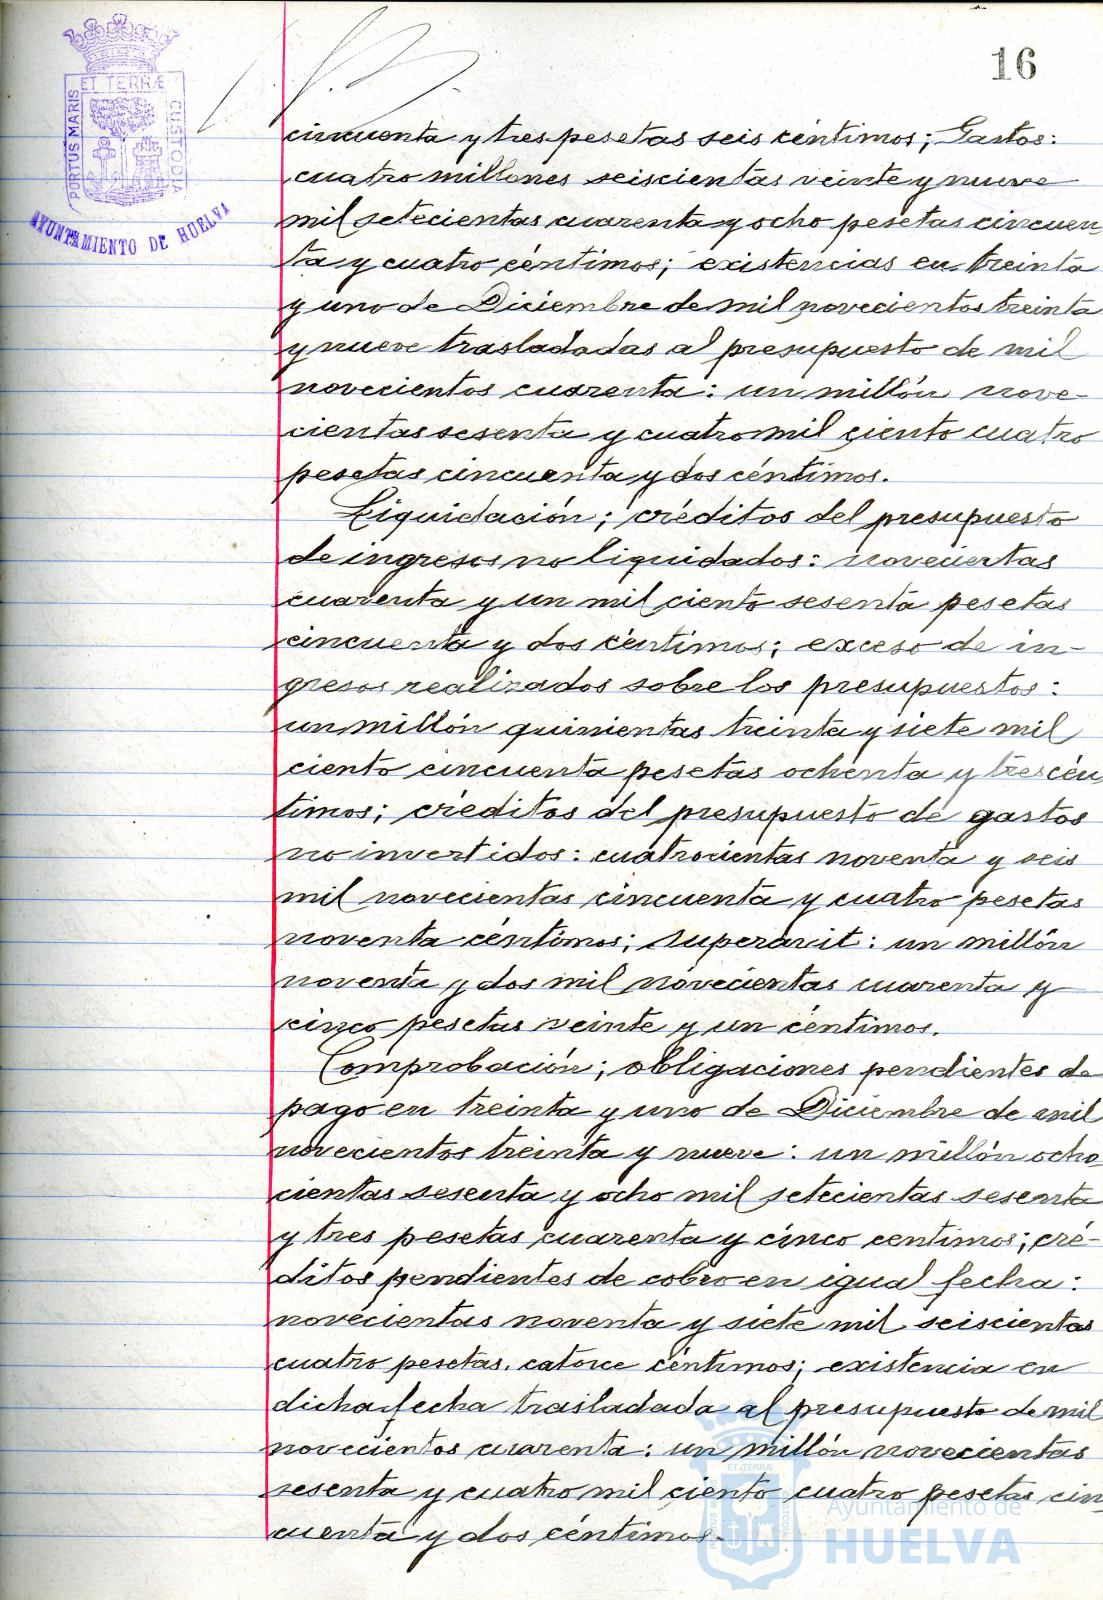 16
ET TERRÆ
PORTUS MARIS
CUSTODIA
AYUNTAMIENTO DE HUELVA
cincuenta y tres pesetas seis céntimos; Gastos:
cuatro millones seiscientas veinte y nueve
mil setecientas cuarenta y ocho pesetas cincuen
ta y cuatro céntimos; existencias en treinta
y uno de Diciembre de mil novecientos treinta
y nueve trasladadas al presupuesto de mil
novecientos cuarenta: un millón nove-
cientas sesenta y cuatro mil ciento cuatro
pesetas cincuenta y dos céntimos.
Liquidación; créditos del presupuesto
de ingresos no liquidados: novecientas
cuarenta y un mil ciento sesenta pesetas
cincuenta y dos céntimos; exceso de in-
gresos realizados sobre los presupuestos:
un millón quinientas treinta y siete mil
ciento cincuenta pesetas ochenta y tres cén
timos; créditos del presupuesto de gastos
no invertidos: cuatrocientas noventa y seis
mil novecientas cincuenta y cuatro pesetas
noventa céntimos; superávit: un millón
noventa y dos mil novecientas cuarenta y
cinco pesetas veinte y un céntimos.
Comprobación; obligaciones pendientes de
pago en treinta y uno de Diciembre de mil
novecientos treinta y nueve: un millón ocho
cientas sesenta y ocho mil setecientas sesenta
y tres pesetas cuarenta y cinco centimos; cré-
ditos pendientes de cobro en igual fecha:
novecientas noventa y siete mil seiscientas
cuatro pesetas catorce céntimos; existencia en
dicha fecha trasladada al presupuesto de mil
novecientos cuarenta: un millón novecientas
sesenta y cuatro mil ciento cuatro pesetas cin
cuenta y dos céntimos.
Ayuntamiento de
HUELVA